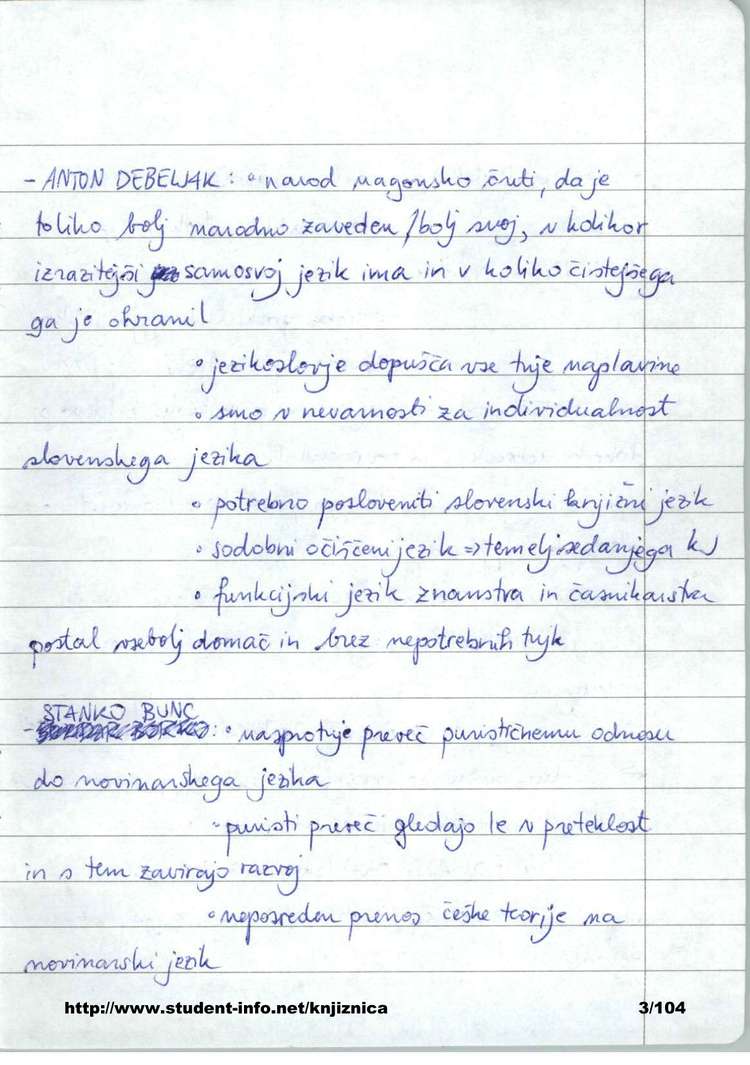 - ANTON DEBELJAK: • narod nagonsko čuti, da je
toliko bolj narodno zaveden / bolj svoj, v kolikor
izrazitejši samosvoj jezik ima in v koliko čistejšega
ga je ohranil
• jezikoslovje dopušča vse tuje naplavine
• smo v nevarnosti za individualnost
slovenskega jezika
• potrebno posloveniti slovenski knjižni jezik
• sodobni očiščeni jezik => temelj sedanjega KJ
• funkcijski jezik znanstva in časnikarstva
postal vsebolj domač in brez nepotrebnih tujk
STANKO BUNC
- : • nasprotuje preveč purističnemu odnosu
do novinarskega jezika
- puristi preveč gledajo le v preteklost
in s tem zavirajo razvoj
• neposreden prenos češke teorije na
novinarski jezik
http://www.student-info.net/knjiznica 3/104